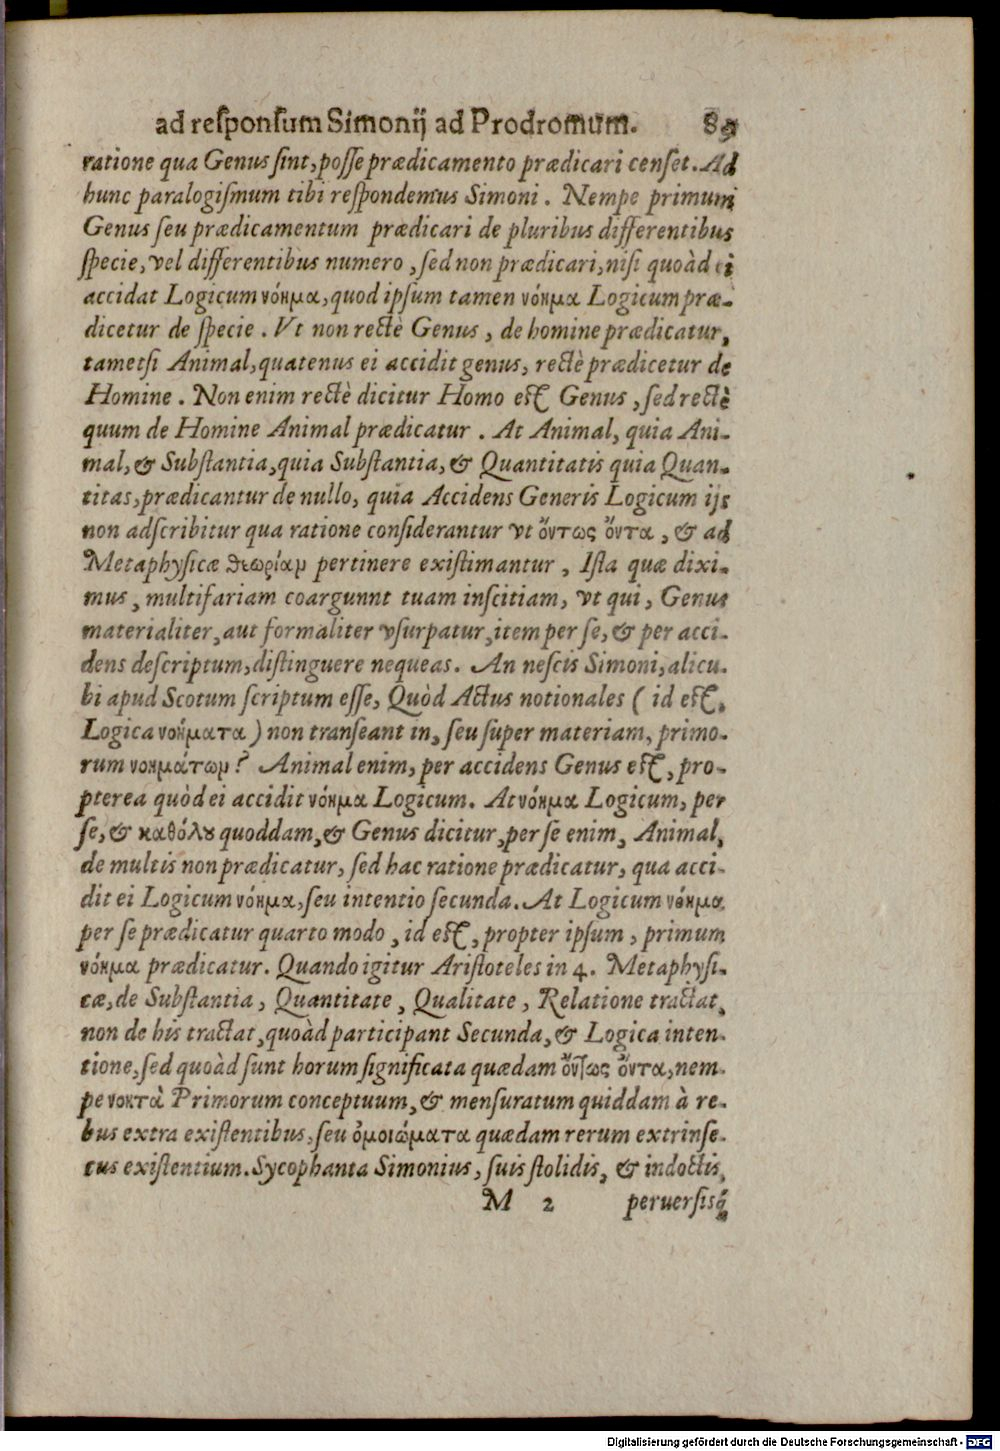 ad responsum Simonij ad Prodromum. 89
ratione qua Genus sint, posse prædicamento prædicari censet. Ad
hunc paralogismum tibi respondemus Simoni. Nempe primum
Genus seu prædicamentum prædicari de pluribus differentibus
specie, vel differentibus numero, sed non prædicari, nisi quoàd ei
accidat Logicum νόημα, quod ipsum tamen νόημα Logicum præ-
dicetur de specie. Vt non rectè Genus, de homine prædicatur,
tametsi Animal, quatenus ei accidit genus, rectè prædicetur de
Homine. Non enim rectè dicitur Homo est Genus, sed rectè
quum de Homine Animal prædicatur. At Animal, quia Ani-
mal, & Substantia, quia Substantia, & Quantitatis quia Quan-
titas, prædicantur de nullo, quia Accidens Generis Logicum ijs
non adscribitur qua ratione considerantur vt ὄντως ὄντα, & ad
Metaphysicæ θεωρίαν pertinere existimantur, Ista quæ dixi-
mus, multifariam coargunnt tuam inscitiam, vt qui, Genus
materialiter, aut formaliter vsurpatur, item per se, & per acci-
dens descriptum, distinguere nequeas. An nescis Simoni, alicu-
bi apud Scotum scriptum esse, Quòd Actus notionales ( id est,
Logica νοήματα ) non transeant in, seu super materiam, primo-
rum νοημάτων? Animal enim, per accidens Genus est, pro-
pterea quòd ei accidit νόημα Logicum. At νόημα Logicum, per
se, & καθόλου quoddam, & Genus dicitur, per se enim, Animal,
de multis non prædicatur, sed hac ratione prædicatur, qua acci-
dit ei Logicum νόημα, seu intentio secunda. At Logicum νόημα
per se prædicatur quarto modo, id est, propter ipsum, primum
νόημα prædicatur. Quando igitur Aristoteles in 4. Metaphysi-
cæ, de Substantia, Quantitate, Qualitate, Relatione tractat,
non de his tractat, quoàd participant Secunda, & Logica inten-
tione, sed quoàd sunt horum significata quædam ὄντως ὄντα, nem-
pe νοητὰ Primorum conceptuum, & mensuratum quiddam à re-
bus extra existentibus, seu ὁμοιώματα quædam rerum extrinse-
cus existentium. Sycophanta Simonius, suis stolidis, & indoctis,
M 2 peruersisq́;
Digitalisierung gefördert durch die Deutsche Forschungsgemeinschaft - DFG